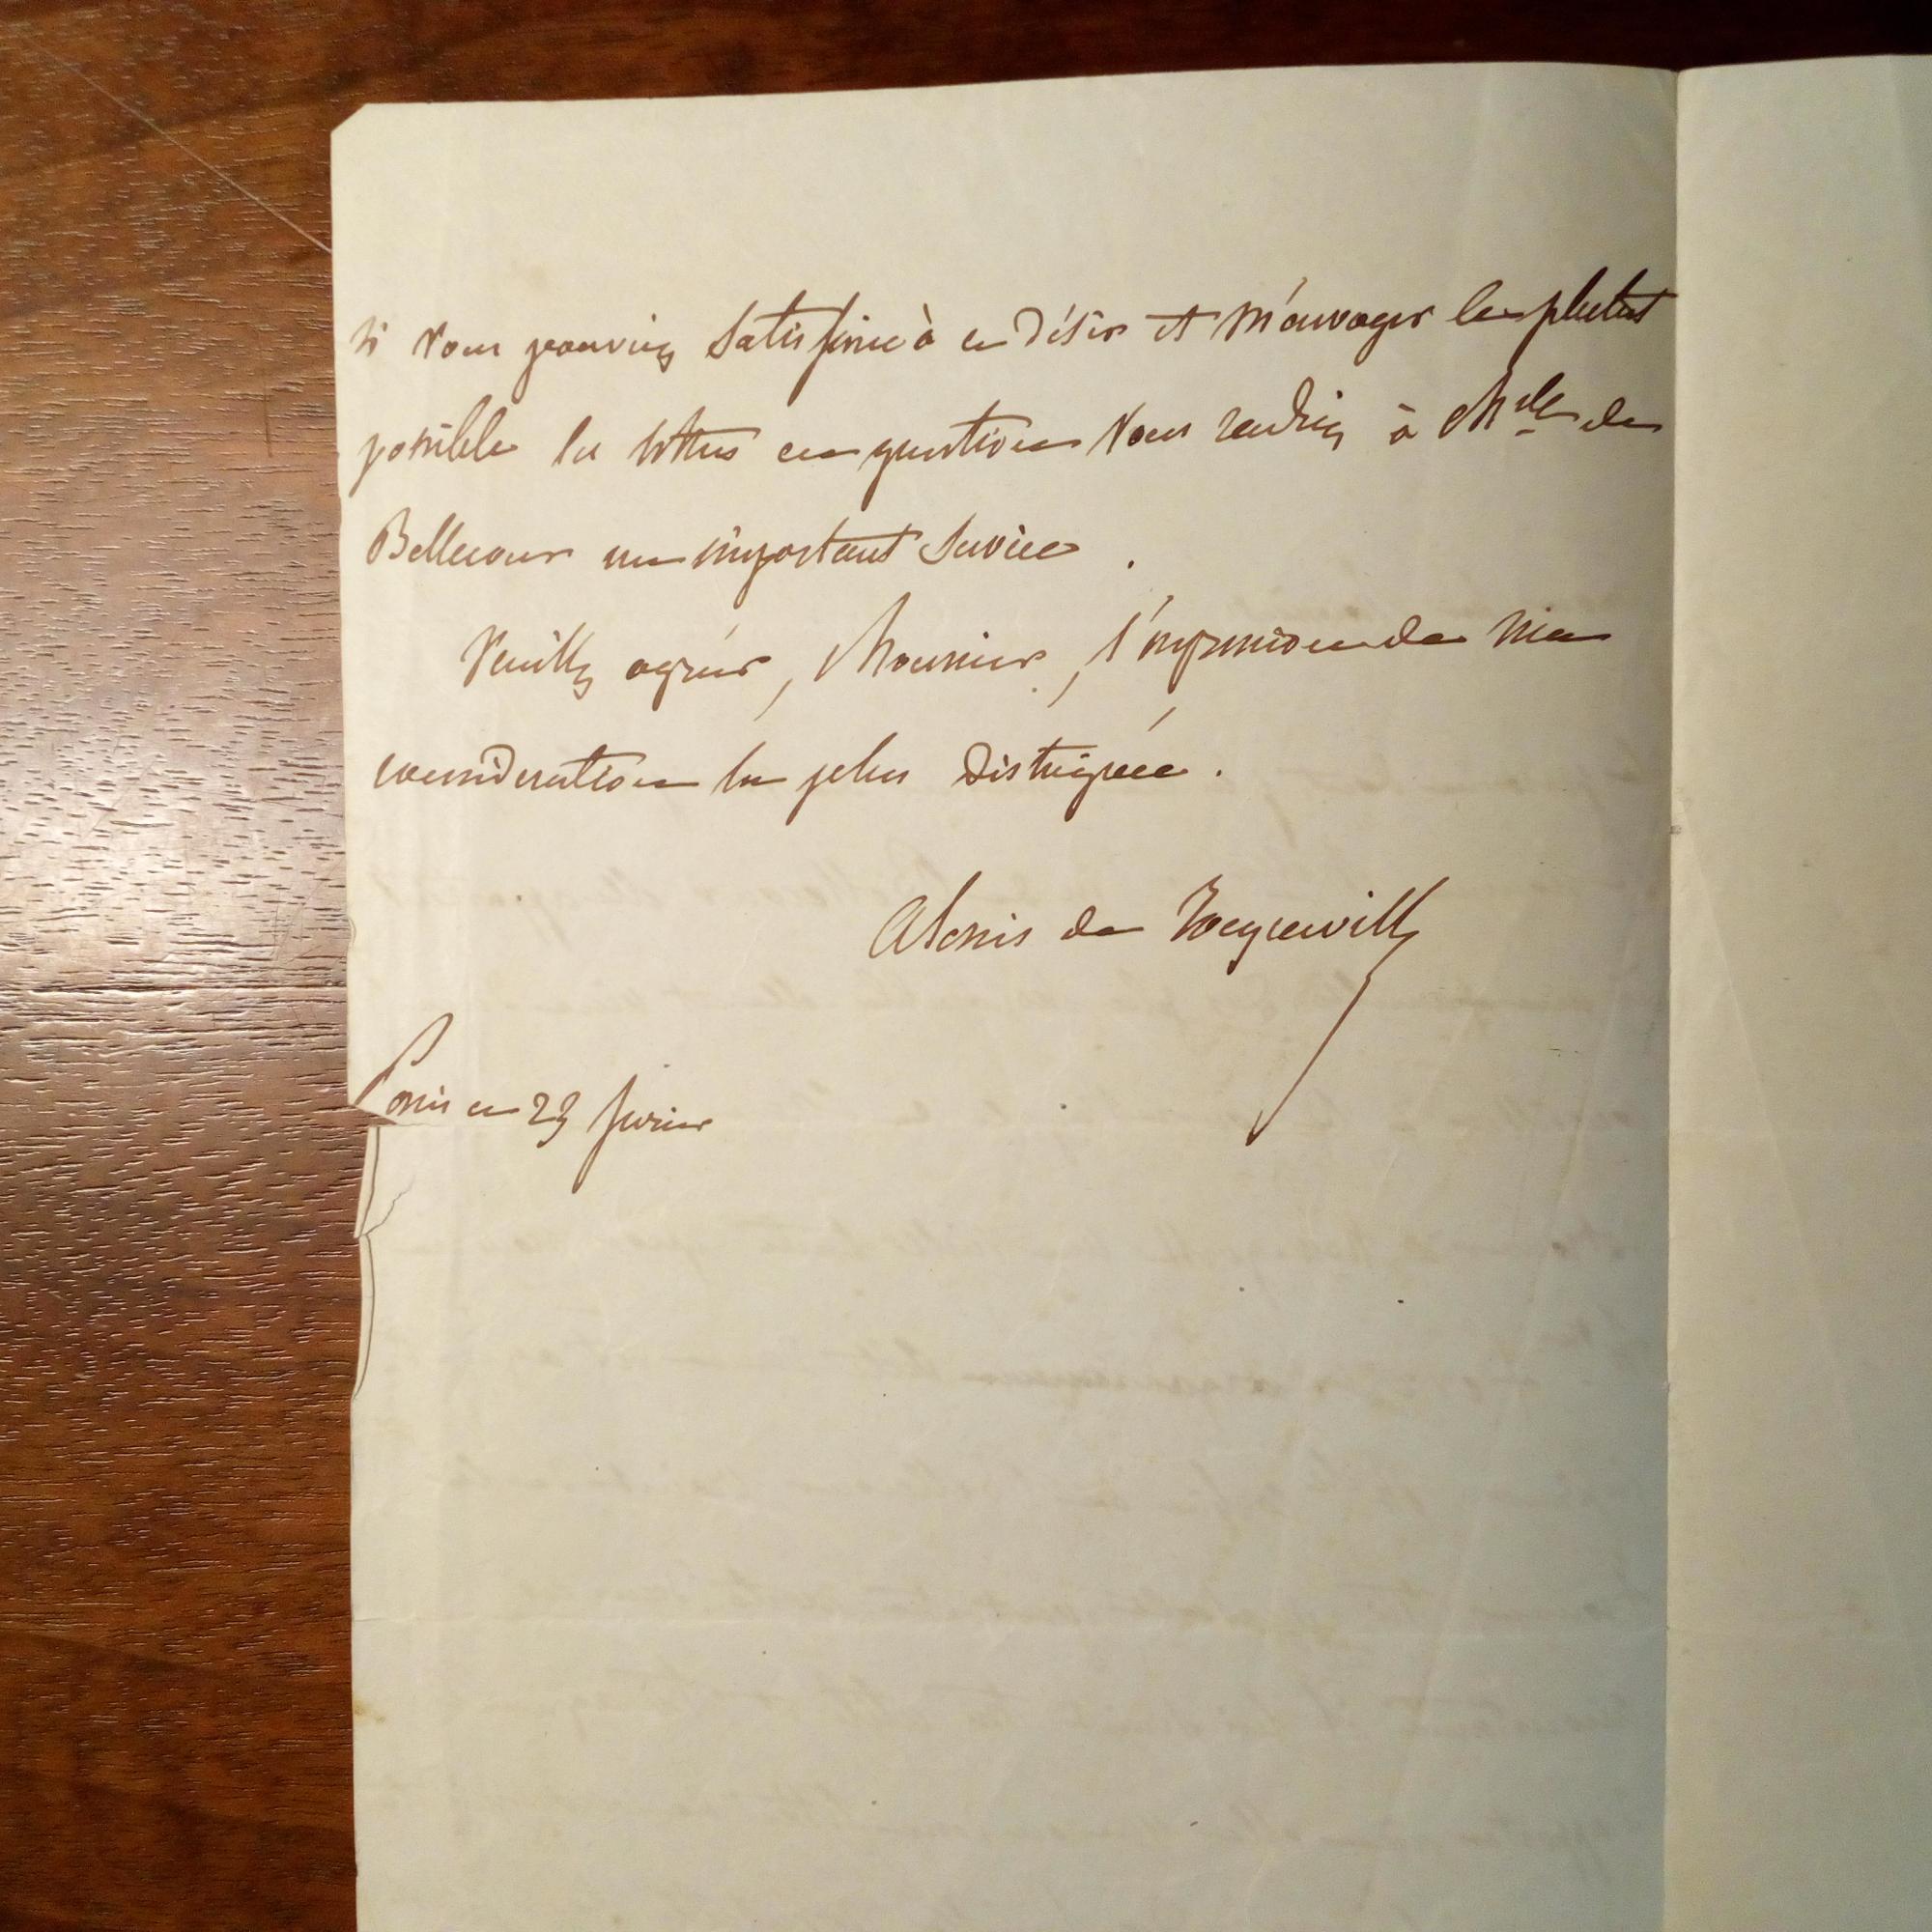 Si vous pouviez satisfaire à ce désir et m'envoyer le plutot
possible les lettres en question vous rendriez à Mlle de
Bellecour un important service.
Veuillez agréer, Monsieur, l'expression de ma
considération la plus distinguée.
Alexis de Tocqueville
Paris ce 23 février